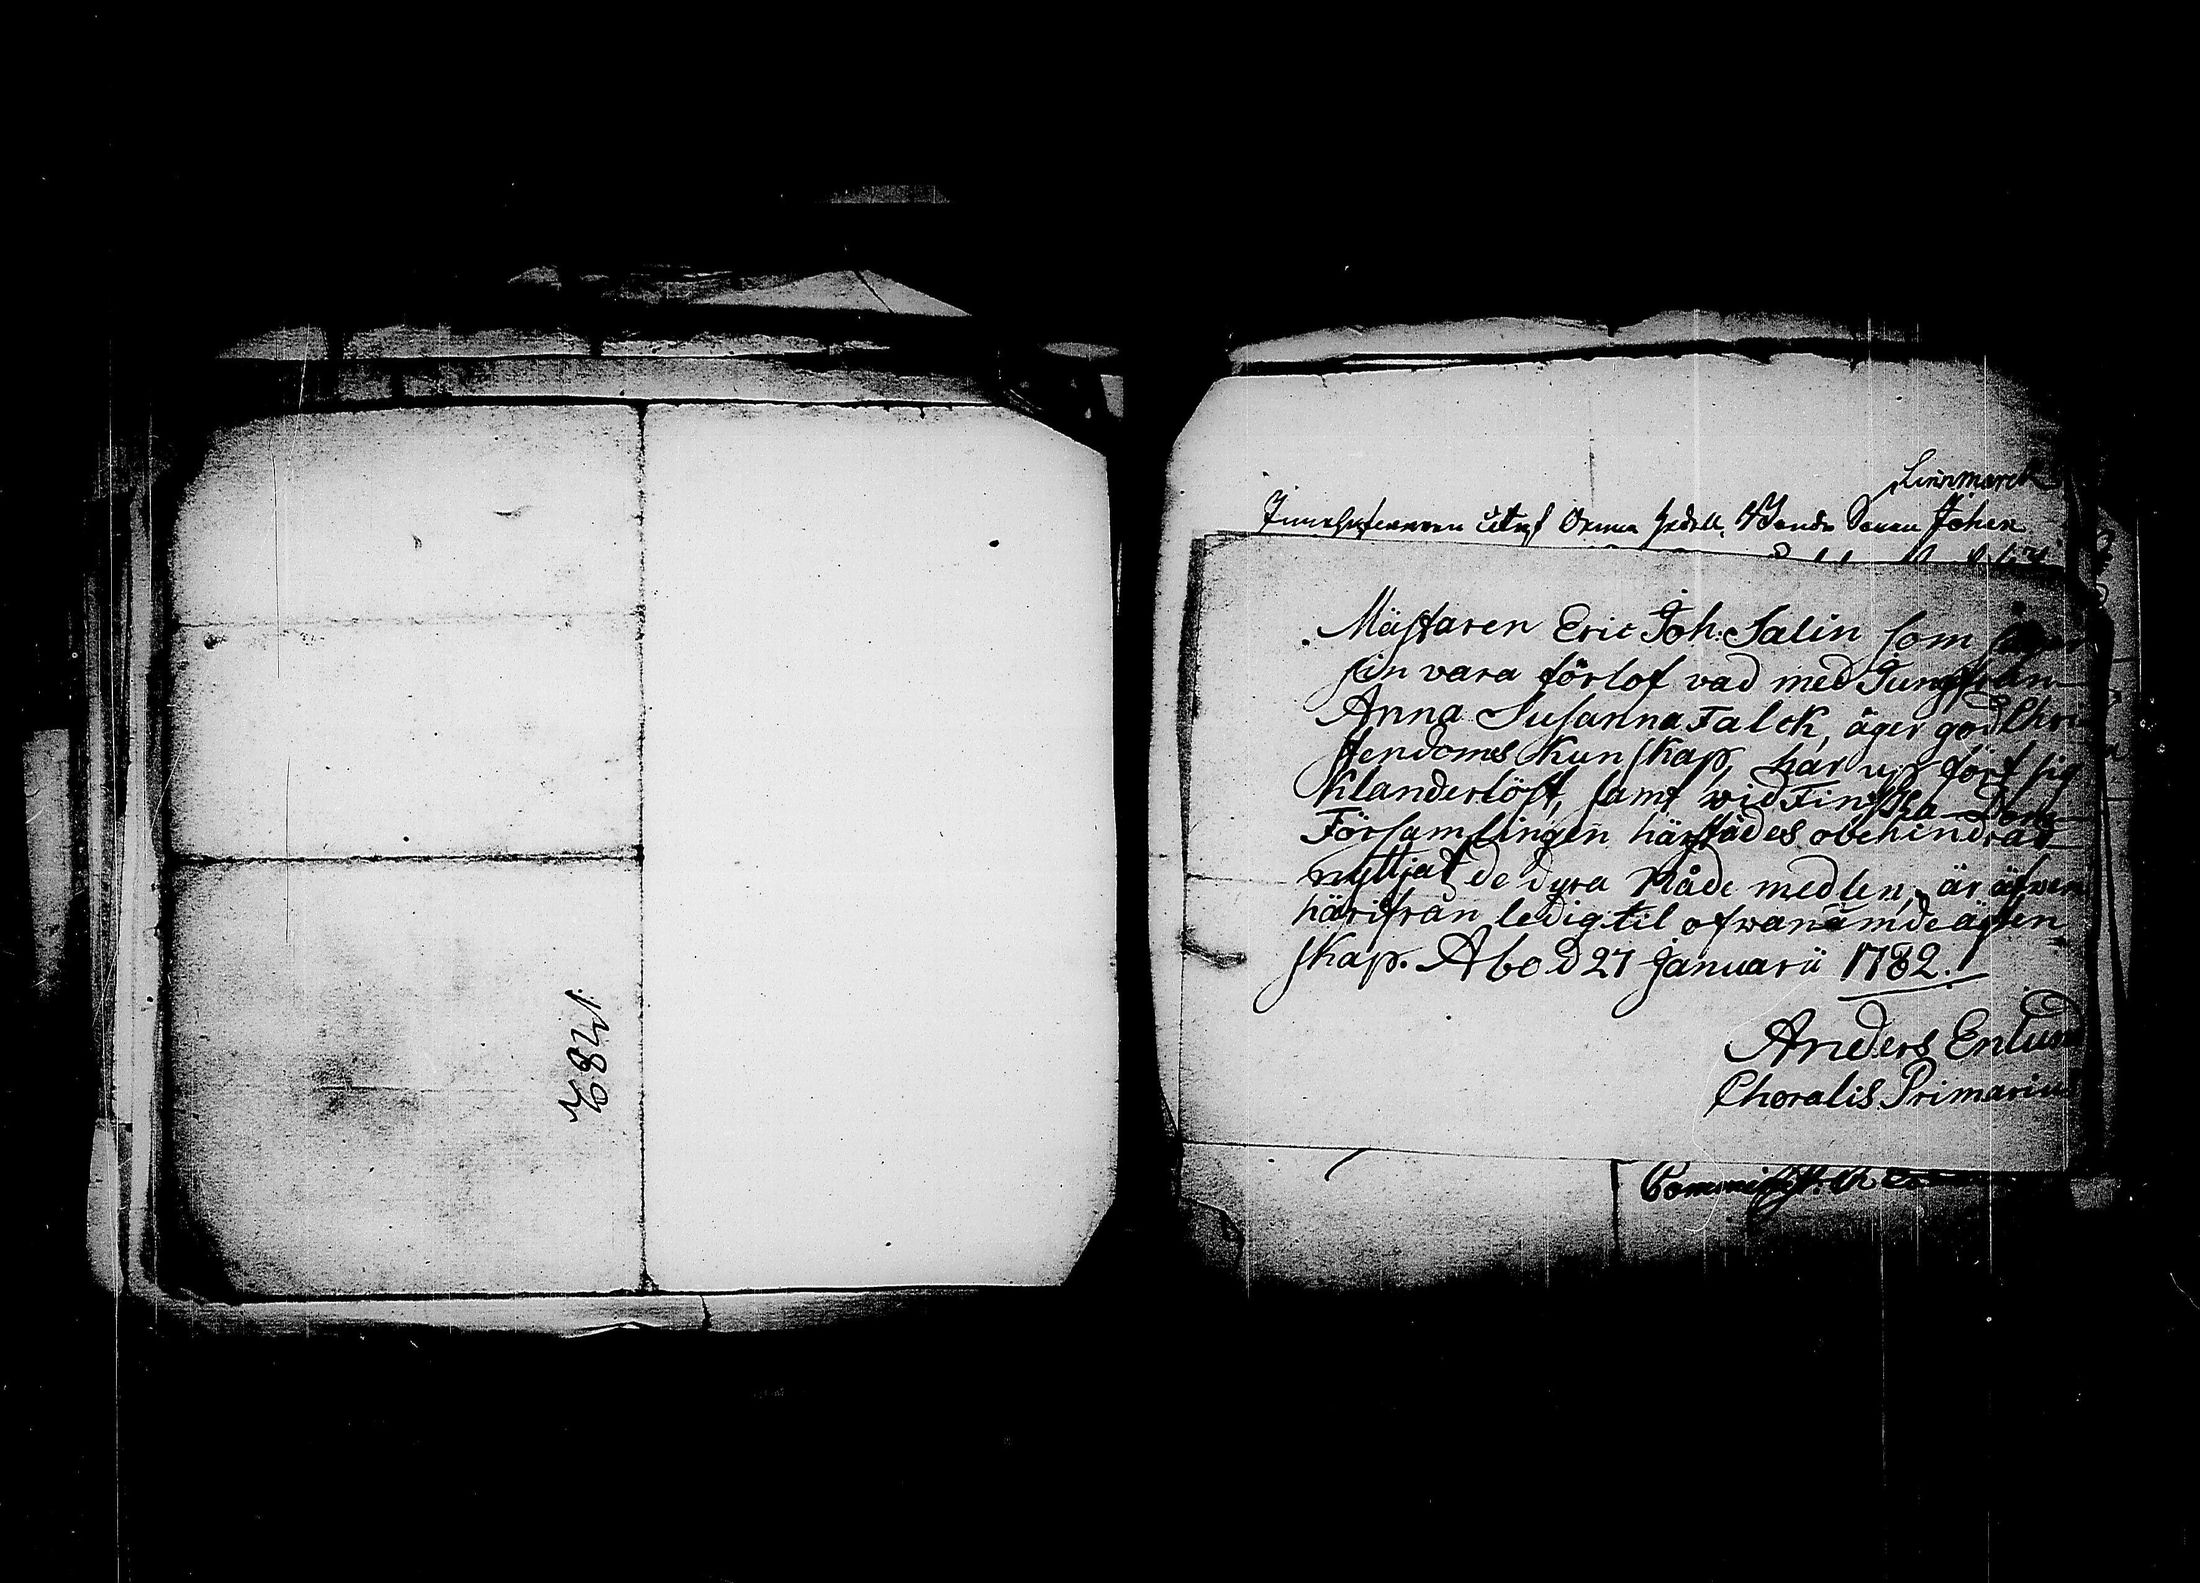 1782.
Linnmarck
Johan
Mästaren Eric Joh: Salin som
sin vara förlofvad med Jungfrun
Anna Susanna Falck, äger god Chri
stendoms Kunskap, har up fört sig
Klanderlöst, samt wid Finska
Församlingen härstädes obehindrad
nyttjat de dyra Nåde medlen, är äfwen
härifrån ledig til ofwanämde ächten-
skap. Åbo d 27 Januarii 1782.
Anders Enlund
Choralis Primarius